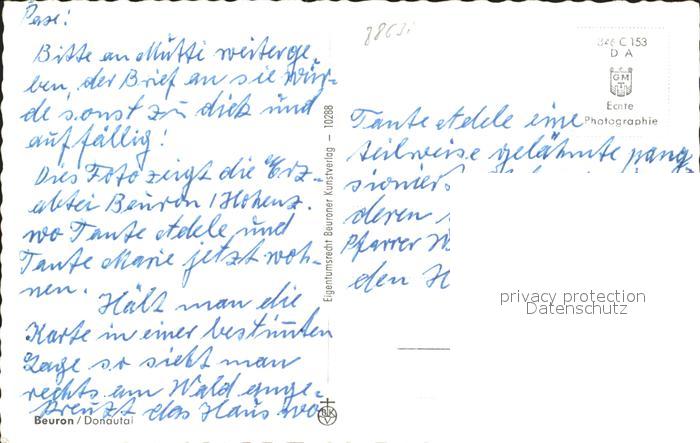 Bitte an Mutti weiterge-
ben, der Brief an sie wür-
de sonst zu dick und
auffällig!
Dies Foto zeigt die Erz-
abtei Beuron / Hohenz.
wo Tante Adele und
Tante Marie jetzt woh-
nen.
Hält man die
Karte in einer bestimten
Lage so sieht man
rechts am Wald ange-
kreuzt das Haus wo
Beuron / Donautal
Eigentumsrecht Beuroner Kunstverlag - 10288
8863i
846 C 153
D A
GM
Echte
Photographie
Tante Adele eine
teilweise gelähmte
deren
Pfarrer
den H
privacy protection
Datenschutz